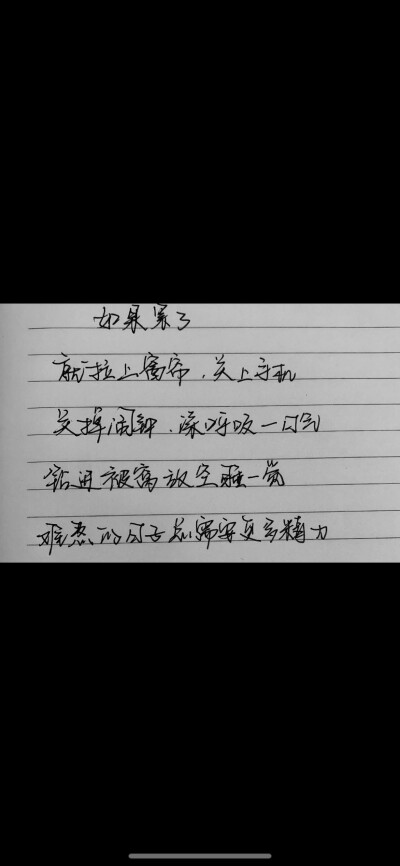 如果累了
就拉上窗帘.关上手机
关掉闹钟.深呼吸一口气
钻进被窝放空睡一觉
难熬的日子总需要更多精力